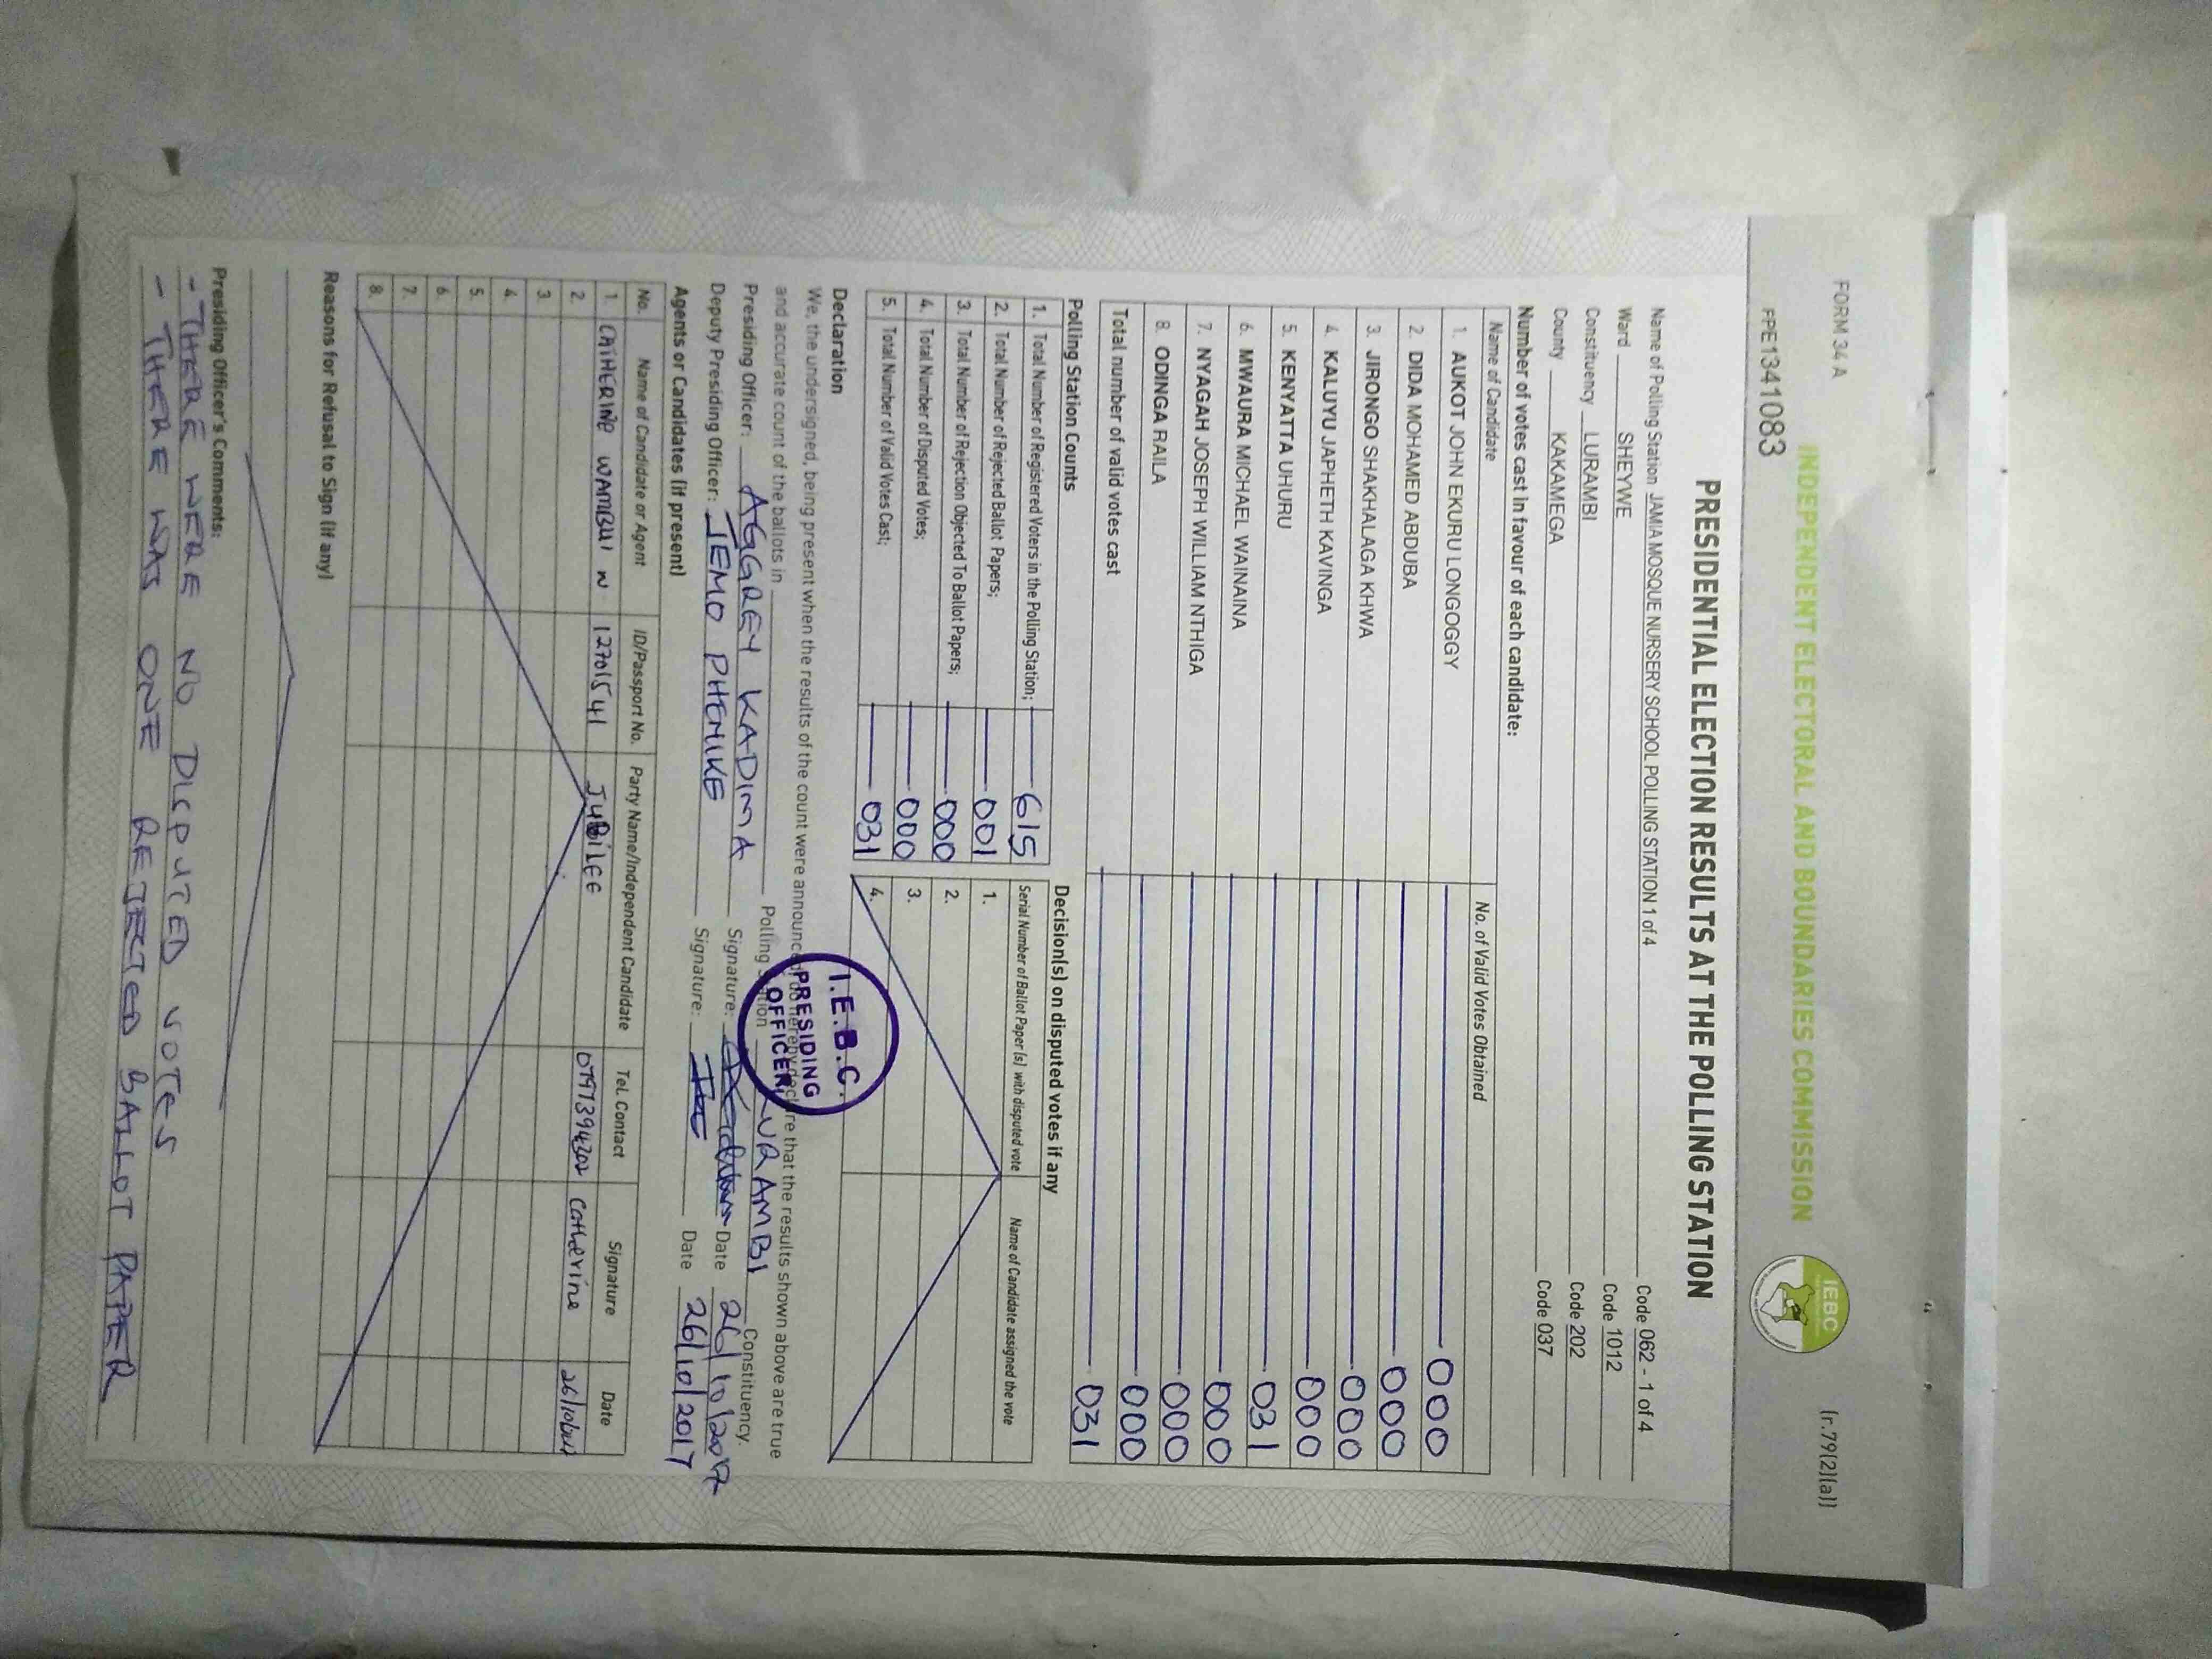 FORM 34 A
(r.79(2)(a))
INDEPENDENT ELECTORAL AND BOUNDARIES COMMISSION
IEBC
PPE1341083
PRESIDENTIAL ELECTION RESULTS AT THE POLLING STATION
Name of Polling Station JAMIA MOSQUE NURSERY SCHOOL POLLING STATION 1 of 4 Code 062 - 1 of 4
Ward SHEYWE Code 1012
Constituency LURAMBI Code 202
County KAKAMEGA Code 037
Number of votes cast in favour of each candidate:
Name of Candidate No. of Valid Votes Obtained
1. AUKOT JOHN EKURU LONGOGGY 000
2. DIDA MOHAMED ABDUBA 000
3. JIRONGO SHAKHALAGA KHWA 000
4. KALUYU JAPHETH KAVINGA 000
5. KENYATTA UHURU 031
6. MWAURA MICHAEL WAINAINA 000
7. NYAGAH JOSEPH WILLIAM NTHIGA 000
8. ODINGA RAILA 000
Total number of valid votes cast 031
Polling Station Counts
1. Total Number of Registered Voters in the Polling Station; 615
2. Total Number of Rejected Ballot Papers; 001
3. Total Number of Rejection Objected To Ballot Papers; 000
4. Total Number of Disputed Votes; 000
5. Total Number of Valid Votes Cast; 031
Decision(s) on disputed votes if any
Serial Number of Ballot Paper (s) with disputed vote Name of Candidate assigned the vote
1.
2.
3.
4.
Declaration
We, the undersigned, being present when the results of the count were announced, do hereby declare that the results shown above are true
and accurate count of the ballots in Polling Station LURAMBI Constituency.
I.E.B.C.
PRESIDING
OFFICER
Presiding Officer: AGGREY KADIMA Signature: Date 26/10/2017
Deputy Presiding Officer: JEMO PHENIKE Signature: Date 26/10/2017
Agents or Candidates (if present)
No. Name of Candidate or Agent ID/Passport No. Party Name/Independent Candidate Tel. Contact Signature Date
1. CATHERINE WAMBUI N 12701541 JUBILEE 0797394202 Catherine 26/10/2017
2.
3.
4.
5.
6.
7.
8.
Reasons for Refusal to Sign (if any)
Presiding Officer's Comments:
- THERE WERE NO DICPUTED VOTES
- THERE WAS ONE REJECTED BALLOT PAPER